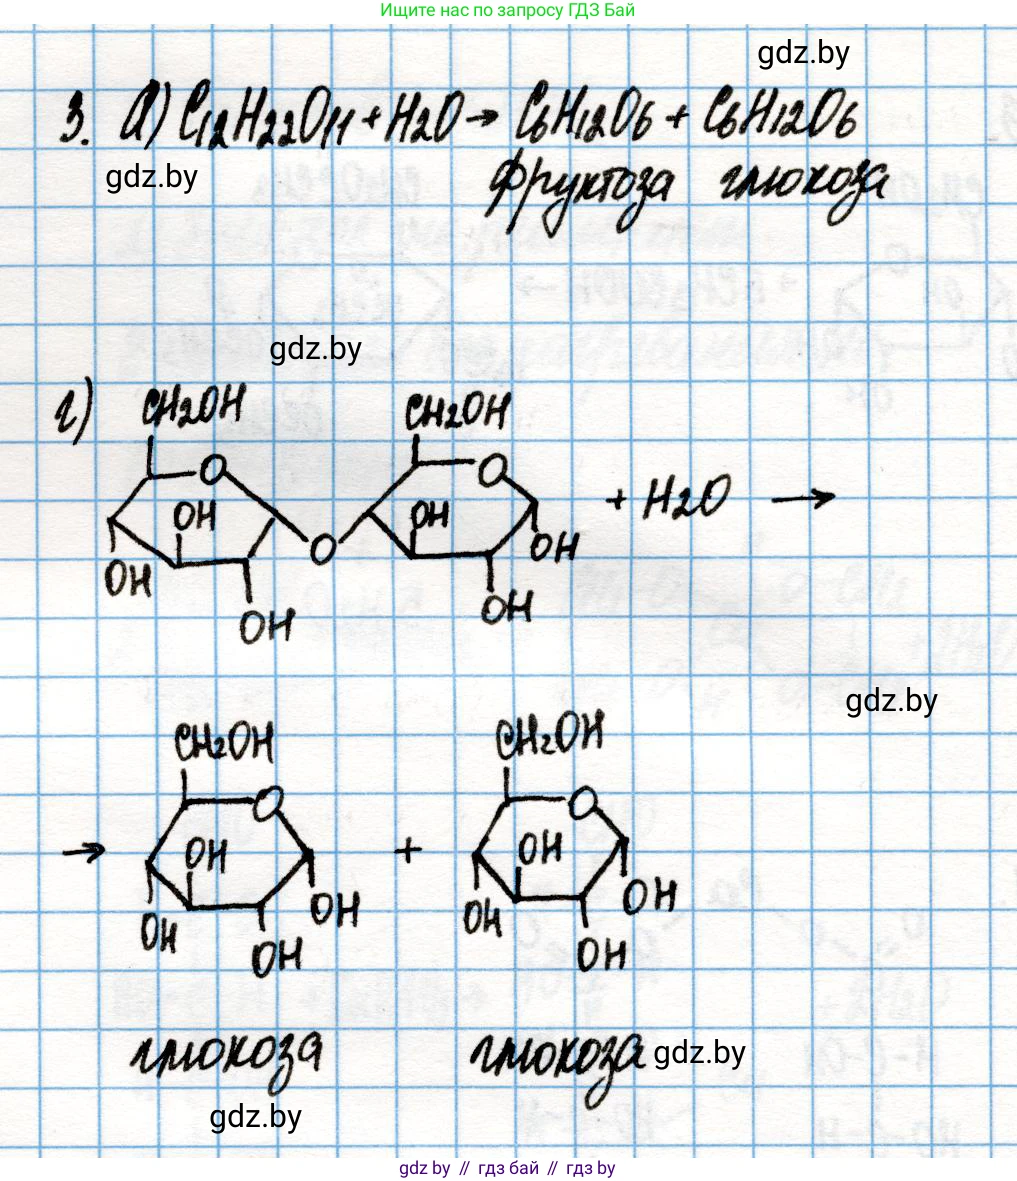 Ищите нас по запросу ГДЗ Бай
gdz.by
3. а) C12H22O11 + H2O → C6H12O6 + C6H12O6
gdz.by
фруктоза глюкоза
gdz.by
г) CH2OH CH2OH
O O
OH OH + H2O →
O OH
OH OH
OH
gdz.by
CH2OH CH2OH
O O
→ OH + OH
OH OH
OH OH
OH OH
глюкоза глюкоза gdz.by
gdz.by
gdz.by // гдз бай // гдз by